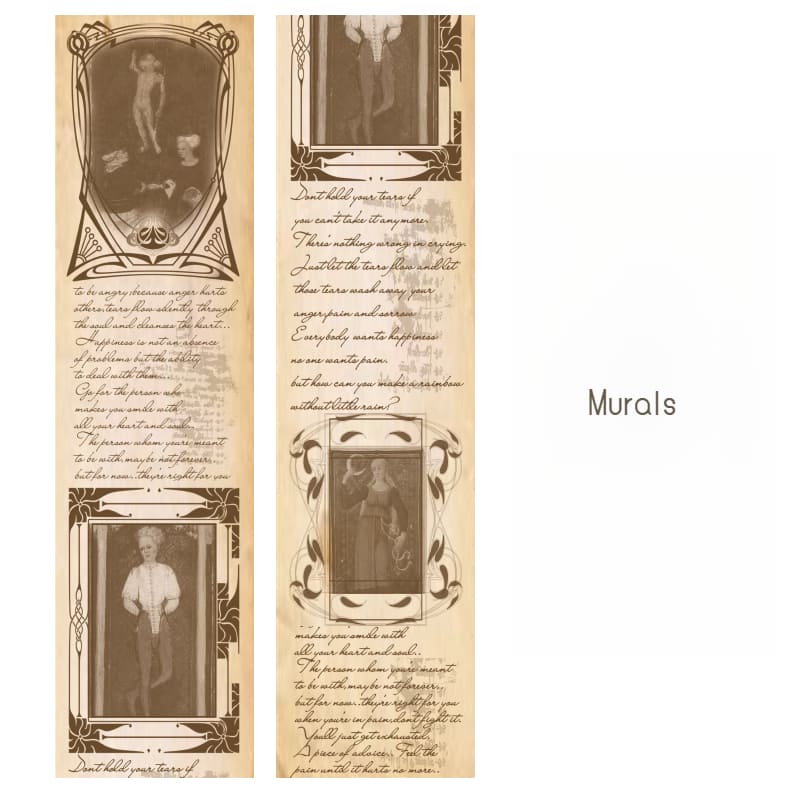 to be angry,because anger hurts
others,tears flow silently through
the soul and cleanses the heart...
Happiness is not an absence
of problems but the ability
to deal with them...
Go for the person who
makes you smile with
all your heart and soul..
The person whom you're meant
to be with,maybe not forever..
but for now..they're right for you
Dont hold your tears if
Dont hold your tears if
you cant take it anymore.
There's nothing wrong in crying.
Just let the tears flow and let
those tears wash away your
anger,pain and sorrow
Everybody wants happiness
no one wants pain.
but how can you make a rainbow
without little rain?
makes you smile with
all your heart and soul..
The person whom you're meant
to be with,maybe not forever..
but for now..they're right for you
when you're in pain,dont fight it.
You'll just get exhausted.
A piece of advice.. Feel the
pain until it hurts no more..
Murals